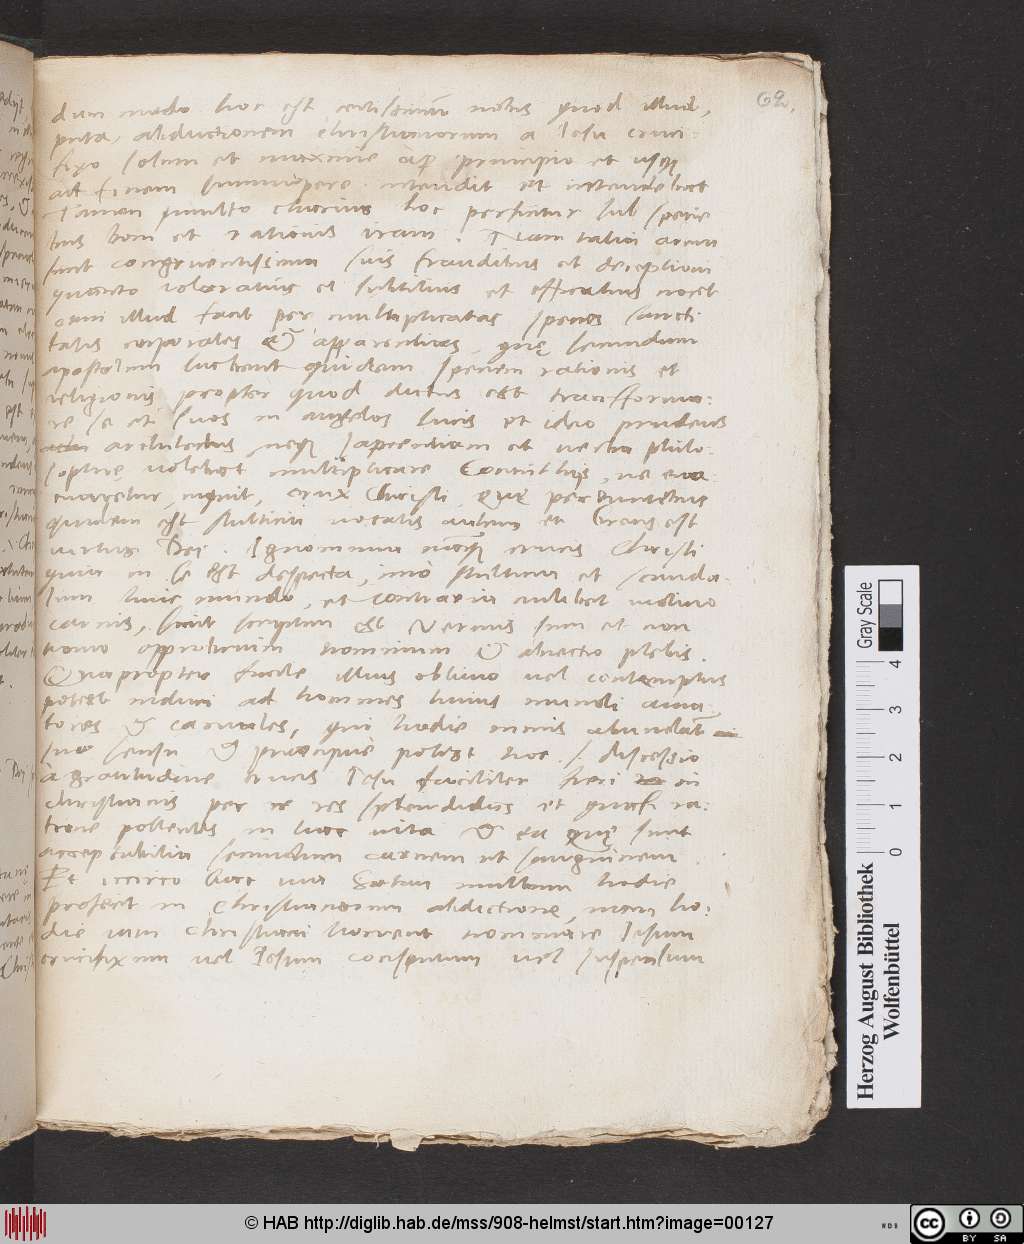 62.
dum modo hoc est certissimum nobis quod illud,
puta, abductionem christianorum a Jesu cruci-
fixo solum et maxime a principio et usque
ad finem summopere intendit et intendebat
Tamen multo clarius hoc perficitur sub specie
bus boni et rationis viam. Nam talia arma
sunt congruentissima suis fraudibus et deceptioni
quanto coloratius et subtilius et efficatius nocet
cum illud facit per multiplicatas species sancti
tatis corporales & apparentias, quę secundum
apostolum habent quidem speciem rationis et
religionis propter quod dictus est transforma-
re se et suos in angelos lucis et ideo prudens
architectus neque sapientiam et verba philo-
sophię volebat multiplicare Corinthijs, ne eva-
cuaretur, inquit, crux Christi, quę pereuntibus
quidem est stultitia vocatis autem et Grecis est
virtus Dei. Ignominia itaque crucis Christi
quia in se est despecta, imo stultitia et scanda-
lum huic mundo, et contraria cuilibet motivo
carnis, sicut scriptum est Vermis sum et non
homo opprobrium hominum & abiectio plebis.
Quapropter facile illius oblivio vel contemptus
potest induci ad homines huius mundi ama-
tores & carnales, qui hodie nimis abundat in
suo sensu & precipue potest hoc .s. discessio
à gratitudine crucis Jesu faciliter fieri in
christianis per res splendidas et quasi ra-
tione pollentes in hac vita & ea quę sunt
acceptabilia secundum carnem et sanguinem.
Et iccirco hac via Satan multum hodie
profecit in Christianorum abdictione, nam ho-
die iam Christiani horrent nominare Jesum
crucifixum vel Jesum consputum vel suspensum
Gray Scale
0 1 2 3 4
Herzog August Bibliothek
Wolfenbüttel
© HAB http://diglib.hab.de/mss/908-helmst/start.htm?image=00127
WDB
cc BY SA